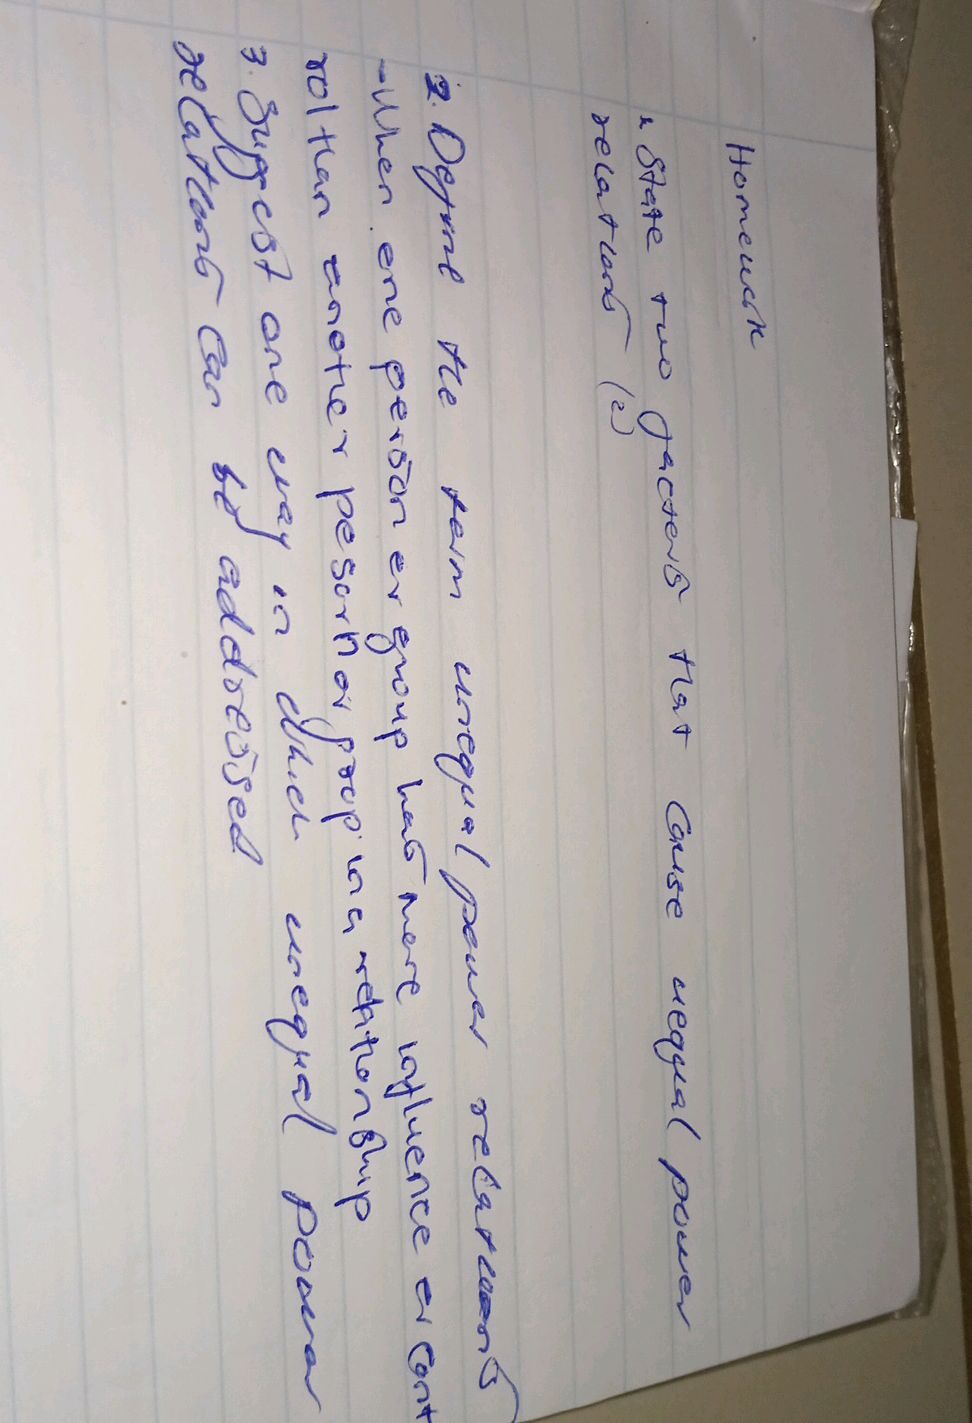 Homework
1. State two factors that cause uequal power
relations (2)
2. Define the term unequal power relations
- When one person or group has more influence or cont
rol than another pesorn or group in a relationship
3. Suggest one way in which unequal power
relations can be addressed